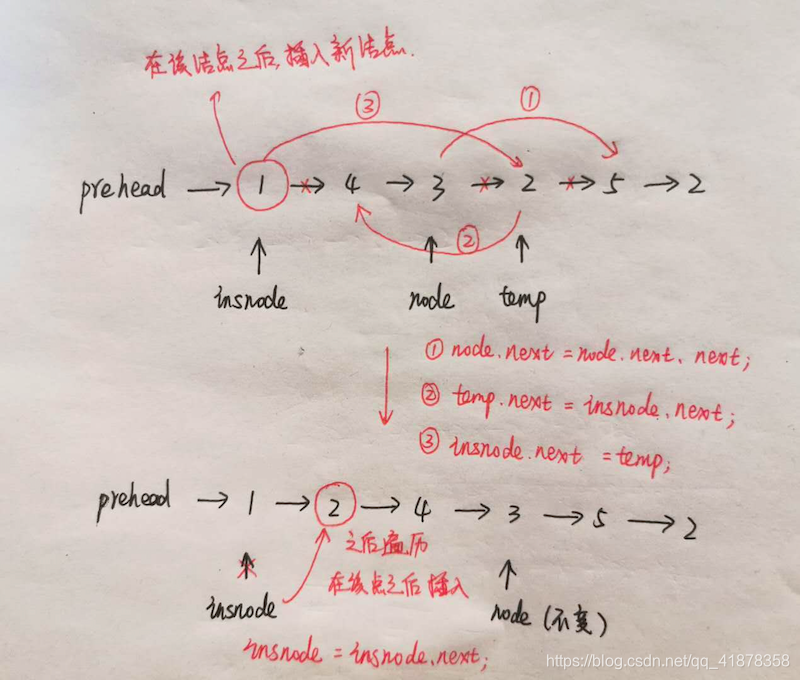 在该结点之后,插入新结点.
③ ①
prehead → 1 → 4 → 3 → 2 → 5 → 2
②
insnode node temp
① node.next = node.next.next;
② temp.next = insnode.next;
③ insnode.next = temp;
prehead → 1 → 2 → 4 → 3 → 5 → 2
之后遍历
在该点之后插入
insnode node (不变)
insnode = insnode.next;
https://blog.csdn.net/qq_41878358